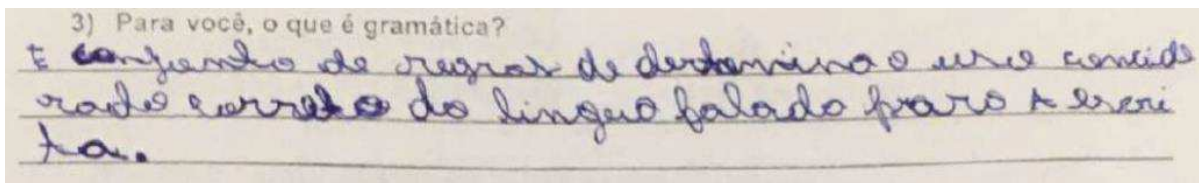 3) Para você, o que é gramática?
É conjunto de regras de determina o uso concide
rado correto da lingua falada para A escri
ta.